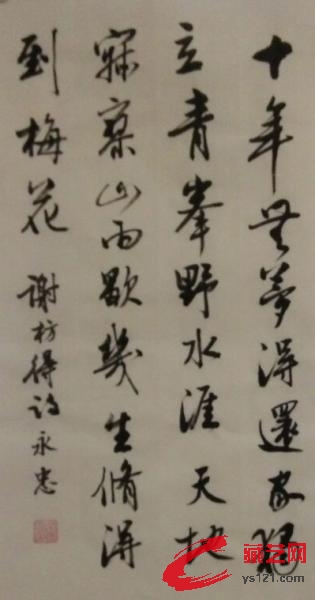 十年無夢得還家獨
立青峯野水涯天地
寂寥山雨歇幾生修得
到梅花 謝枋得詩 永忠
藏艺网
ys121.com